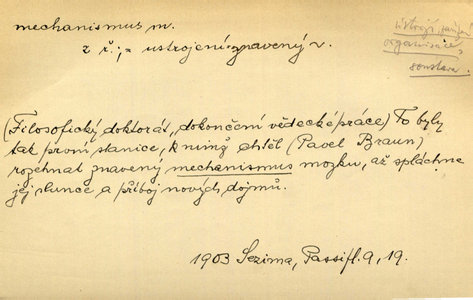 mechanismus m.
z ř.; = ustrojení znavený v.
ústrojí,
organisace,
soustava
(Filosofický doktorát, dokončení vědecké práce) To byly
tak první stanice, k nimž chtěl (Pavel Braun)
rozehnat znavený mechanismus mozku, až spláchne
jej slunce a příboj nových dojmů.
1903 Sezima, Passifl. 9, 19.